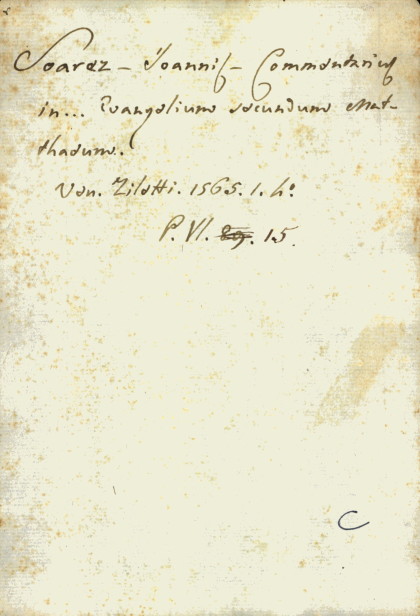 Soarez - Joannis - Commentarius
in... Evangelium secundum Mat-
thaeum.
Ven. Ziletti. 1565. 1. 4º
P. VI. 89. 15.
C